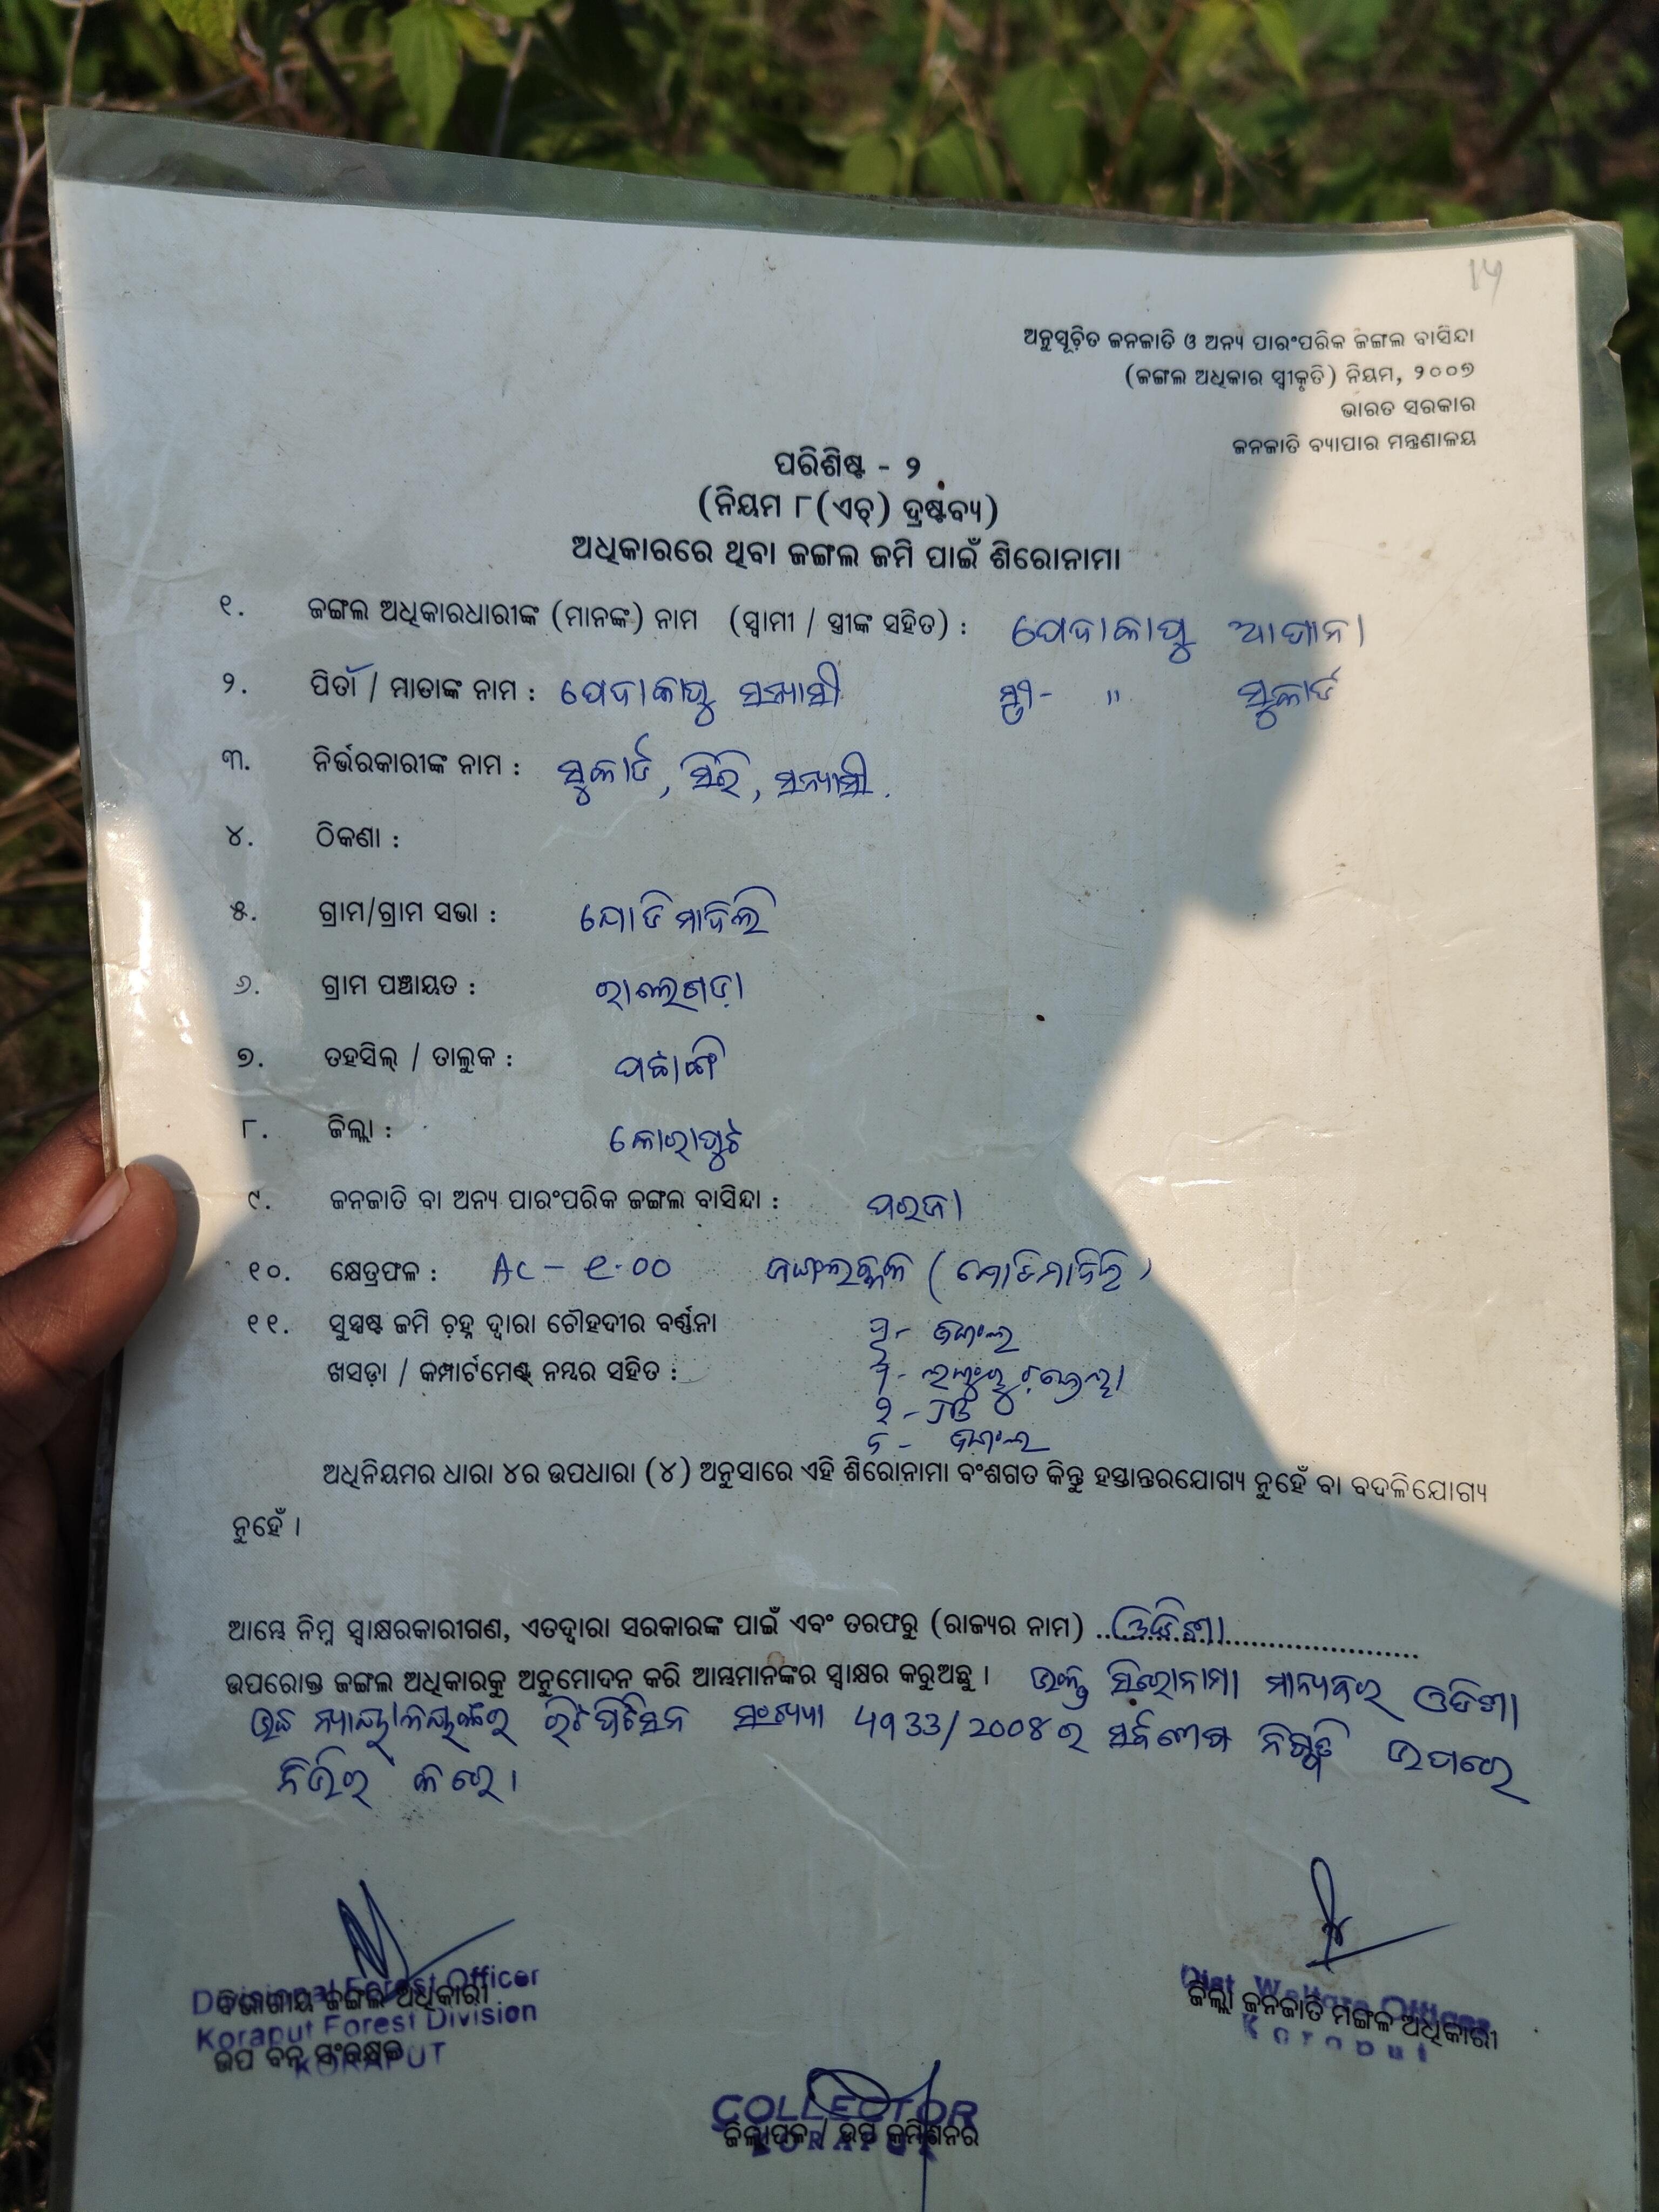 14
ଅନୁସୂଚିତ ଜନଜାତି ଓ ଅନ୍ୟ ପାରଂପରିକ ଜଙ୍ଗଲ ବାସିନ୍ଦା
(ଜଙ୍ଗଲ ଅଧିକାର ସ୍ୱୀକୃତି) ନିୟମ, ୨୦୦୭
ଭାରତ ସରକାର
ଜନଜାତି ବ୍ୟାପାର ମନ୍ତ୍ରଣାଳୟ
ପରିଶିଷ୍ଟ - ୨
(ନିୟମ ୮(ଏଚ୍) ଦ୍ରଷ୍ଟବ୍ୟ)
ଅଧିକାରରେ ଥିବା ଜଙ୍ଗଲ ଜମି ପାଇଁ ଶିରୋନାମା
୧. ଜଙ୍ଗଲ ଅଧିକାରଧାରୀଙ୍କ (ମାନଙ୍କ) ନାମ (ସ୍ୱାମୀ / ସ୍ତ୍ରୀଙ୍କ ସହିତ) : ପେଦାକାପୁ
୨. ପିତା / ମାତାଙ୍କ ନାମ : ପେଦାକାପୁ ସନ୍ୟାସୀ ସ୍ତ୍ରୀ- " ସୁକାର୍ତ
୩. ନିର୍ଭରକାରୀଙ୍କ ନାମ : ସୁକାର୍ତ, ସିରି, ସନ୍ୟାସୀ.
୪. ଠିକଣା :
୫. ଗ୍ରାମ/ଗ୍ରାମ ସଭା :
୬. ଗ୍ରାମ ପଞ୍ଚାୟତ : ରାଲେଗଡ଼ା
୭. ତହସିଲ୍ / ତାଲୁକ : ପଟାଙ୍ଗି
୮. ଜିଲ୍ଲା : କୋରାପୁଟ
୯. ଜନଜାତି ବା ଅନ୍ୟ ପାରଂପରିକ ଜଙ୍ଗଲ ବାସିନ୍ଦା : ପରଜା
୧୦. କ୍ଷେତ୍ରଫଳ : Ac - ୧.00
୧୧. ସୁସ୍ପଷ୍ଟ ଜମି ଚିହ୍ନ ଦ୍ୱାରା ଚୌହଦୀର ବର୍ଣ୍ଣନା ପୂ- ଜଙ୍ଗଲ
ଖସଡ଼ା / କମ୍ପାର୍ଟମେଣ୍ଟ ନମ୍ବର ସହିତ :
ଦ - ଜଙ୍ଗଲ
ଅଧିନିୟମର ଧାରା ୪ର ଉପଧାରା (୪) ଅନୁସାରେ ଏହି ଶିରୋନାମା ବଂଶଗତ କିନ୍ତୁ ହସ୍ତାନ୍ତରଯୋଗ୍ୟ ନୁହେଁ ବା ବଦଳିଯୋଗ୍ୟ
ନୁହେଁ ।
ଆମ୍ଭେ ନିମ୍ନ ସ୍ୱାକ୍ଷରକାରୀଗଣ, ଏତଦ୍ୱାରା ସରକାରଙ୍କ ପାଇଁ ଏବଂ ତରଫରୁ (ରାଜ୍ୟର ନାମ) ..ଓଡ଼ିଶା..............................
ଉପରୋକ୍ତ ଜଙ୍ଗଲ ଅଧିକାରକୁ ଅନୁମୋଦନ କରି ଆମ୍ଭମାନଙ୍କର ସ୍ୱାକ୍ଷର କରୁଅଛୁ । ଉକ୍ତ ସିରୋନାମା ମାନ୍ୟବର ଓଡିଶା
ଉଚ୍ଚ ନ୍ୟାୟାଳୟଙ୍କର ରିଟ ପିଟିସନ ସଂଖ୍ୟା 4933/2008 ର ସର୍ବଶେଷ ନିଷ୍ପତ୍ତି ଉପରେ
ନିର୍ଭର କରେ ।
Divisional Forest Officer
ବିଭାଗୀୟ ଜଙ୍ଗଲ ଅଧିକାରୀ
Koraput Forest Division
ଉପ ବନ ସଂରକ୍ଷକ
KORAPUT
Dist. Welfare Officer
ଜିଲ୍ଲା ଜନଜାତି ମଙ୍ଗଳ ଅଧିକାରୀ
Koraput
COLLECTOR
ଜିଲ୍ଲାପାଳ / ଉପ କମିଶନର
KORAPUT